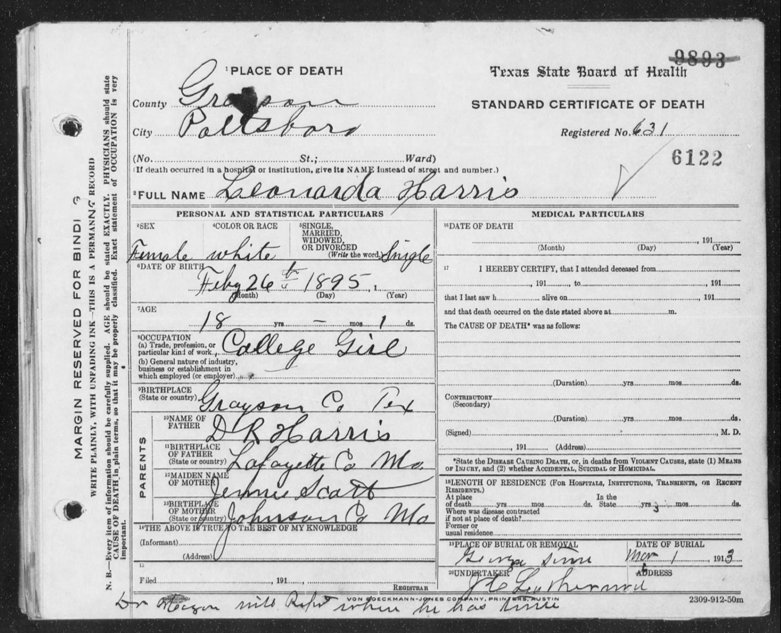 9893
¹PLACE OF DEATH
Texas State Board of Health
County Grayson
STANDARD CERTIFICATE OF DEATH
City Pottsboro
Registered No. 631
(No. St.; Ward)
6122
(If death occurred in a hospital or institution, give its NAME instead of street and number.)
²FULL NAME Leonarda Harris
PERSONAL AND STATISTICAL PARTICULARS
³SEX
Female
⁴COLOR OR RACE
white
⁵SINGLE,
MARRIED,
WIDOWED,
OR DIVORCED
(Write the word) Single
⁶DATE OF BIRTH
Feby 26th 1895, 1
(Month) (Day) (Year)
⁷AGE
18 yrs – mos 1 ds.
⁸OCCUPATION
(a) Trade, profession, or
particular kind of work, College Girl
(b) General nature of industry,
business or establishment in
which employed (or employer)
⁹BIRTHPLACE
(State or country) Grayson Co Tex
PARENTS
¹⁰NAME OF
FATHER D R Harris
¹¹BIRTHPLACE
OF FATHER
(State or country) Lafayette Co Mo.
¹²MAIDEN NAME
OF MOTHER Jennie Scott
¹³BIRTHPLACE
OF MOTHER
(State or country) Johnson Co Mo
¹⁴THE ABOVE IS TRUE TO THE BEST OF MY KNOWLEDGE
(Informant)
(Address)
¹⁵
Filed , 191
REGISTRAR
MEDICAL PARTICULARS
¹⁶DATE OF DEATH
, 191
(Month) (Day) (Year)
¹⁷ I HEREBY CERTIFY, that I attended deceased from
, 191 , to , 191
that I last saw h alive on , 191
and that death occurred on the date stated above at m.
The CAUSE OF DEATH* was as follows:
(Duration) yrs mos ds.
CONTRIBUTORY
(Secondary)
(Duration) yrs mos ds.
(Signed) M. D.
, 191 (Address)
*State the DISEASE CAUSING DEATH, or, in deaths from VIOLENT CAUSES, state (1) MEANS
OF INJURY, and (2) whether ACCIDENTAL, SUICIDAL or HOMICIDAL.
¹⁸LENGTH OF RESIDENCE (FOR HOSPITALS, INSTITUTIONS, TRANSIENTS, OR RECENT
RESIDENTS.)
At place In the
of death yrs mos ds. State yrs mos ds.
Where was disease contracted
if not at place of death?
Former or
usual residence
¹⁹PLACE OF BURIAL OR REMOVAL DATE OF BURIAL
Mar 1 1913
²⁰UNDERTAKER ADDRESS
Leatherwood
Dr will Report when he has time
VON BOECKMANN-JONES COMPANY, PRINTERS, AUSTIN
2309-912-50m
MARGIN RESERVED FOR BINDI G
WRITE PLAINLY, WITH UNFADING INK—THIS IS A PERMANENT RECORD
N. B.—Every item of information should be carefully supplied. AGE should be stated EXACTLY. PHYSICIANS should state
CAUSE OF DEATH in plain terms, so that it may be properly classified. Exact statement of OCCUPATION is very
important.